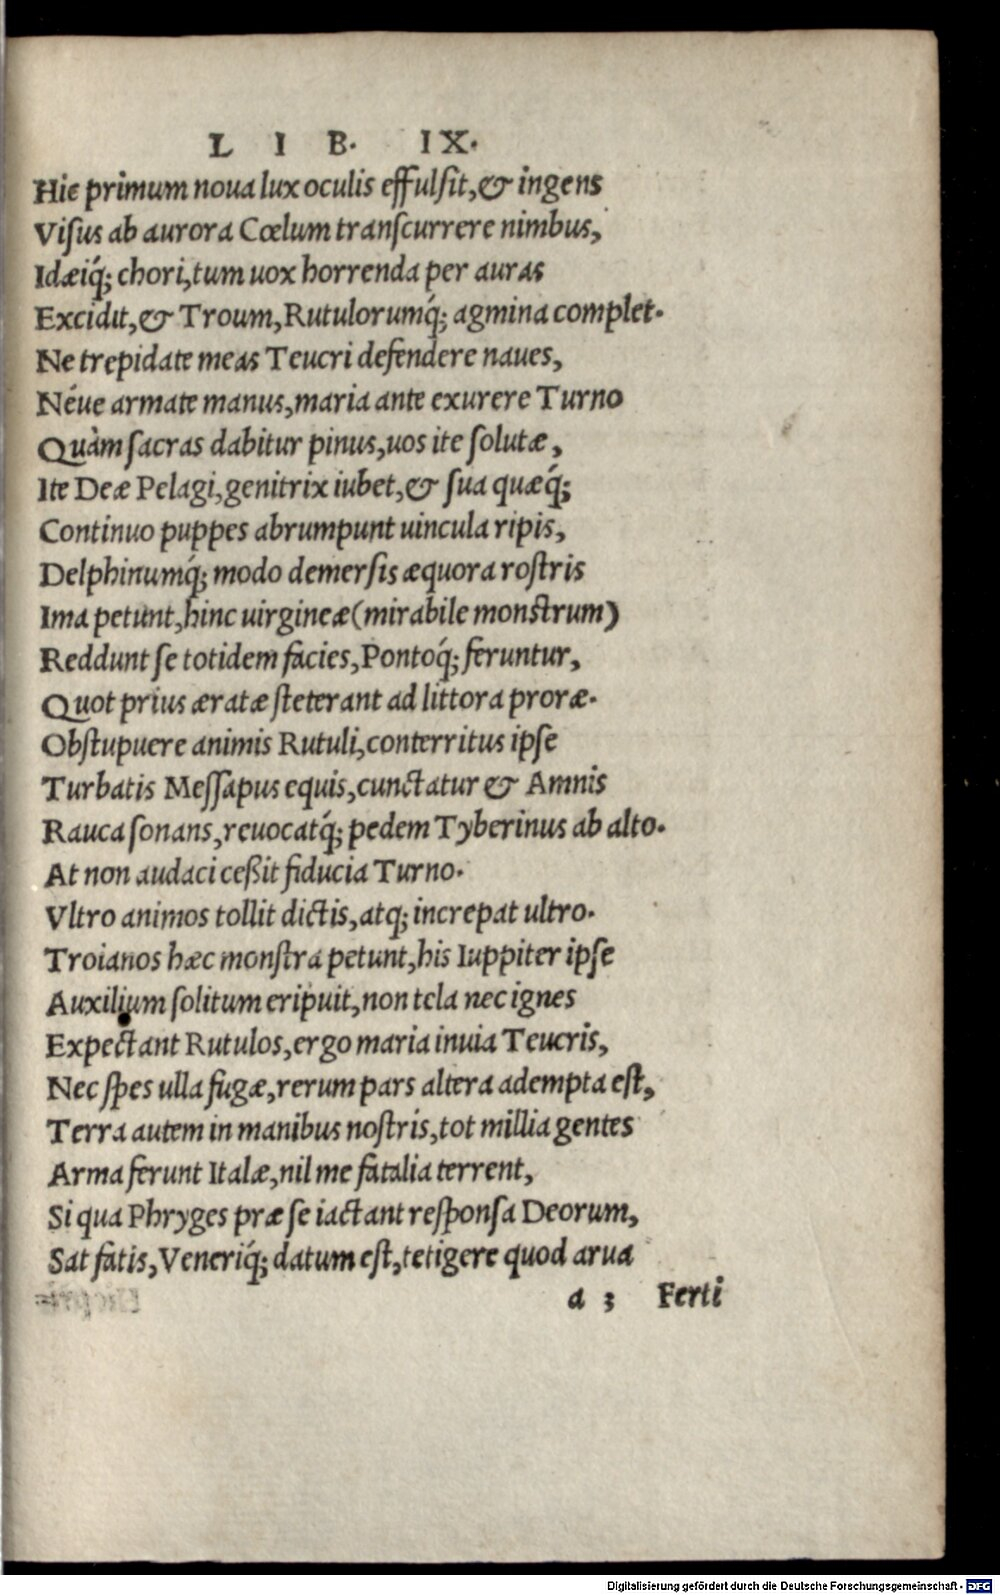 L I B. IX.
Hic primum noua lux oculis effulſit, & ingens
Viſus ab aurora Cœlum tranſcurrere nimbus,
Idæiq́; chori, tum uox horrenda per auras
Excidit, & Troum, Rutulorumq́; agmina complet.
Ne trepidate meas Teucri defendere naues,
Néue armate manus, maria ante exurere Turno
Quàm ſacras dabitur pinus, uos ite ſolutæ,
Ite Deæ Pelagi, genitrix iubet, & ſua quæq́;
Continuo puppes abrumpunt uincula ripis,
Delphinumq́; modo demerſis æquora roſtris
Ima petunt, hinc uirgineæ (mirabile monſtrum)
Reddunt ſe totidem facies, Pontoq́; feruntur,
Quot prius æratæ ſteterant ad littora proræ.
Obſtupuere animis Rutuli, conterritus ipſe
Turbatis Meſſapus equis, cunctatur & Amnis
Rauca ſonans, reuocatq́; pedem Tyberinus ab alto.
At non audaci ceßit fiducia Turno.
Vltro animos tollit dictis, atq; increpat ultro.
Troianos hæc monſtra petunt, his Iuppiter ipſe
Auxilium ſolitum eripuit, non tela nec ignes
Expectant Rutulos, ergo maria inuia Teucris,
Nec ſpes ulla fugæ, rerum pars altera adempta eſt,
Terra autem in manibus noſtris, tot millia gentes
Arma ferunt Italæ, nil me fatalia terrent,
Si qua Phryges præ ſe iactant reſponſa Deorum,
Sat fatis, Veneriq́; datum eſt, tetigere quod arua
a 3 Ferti
Digitalisierung gefördert durch die Deutsche Forschungsgemeinschaft - DFG